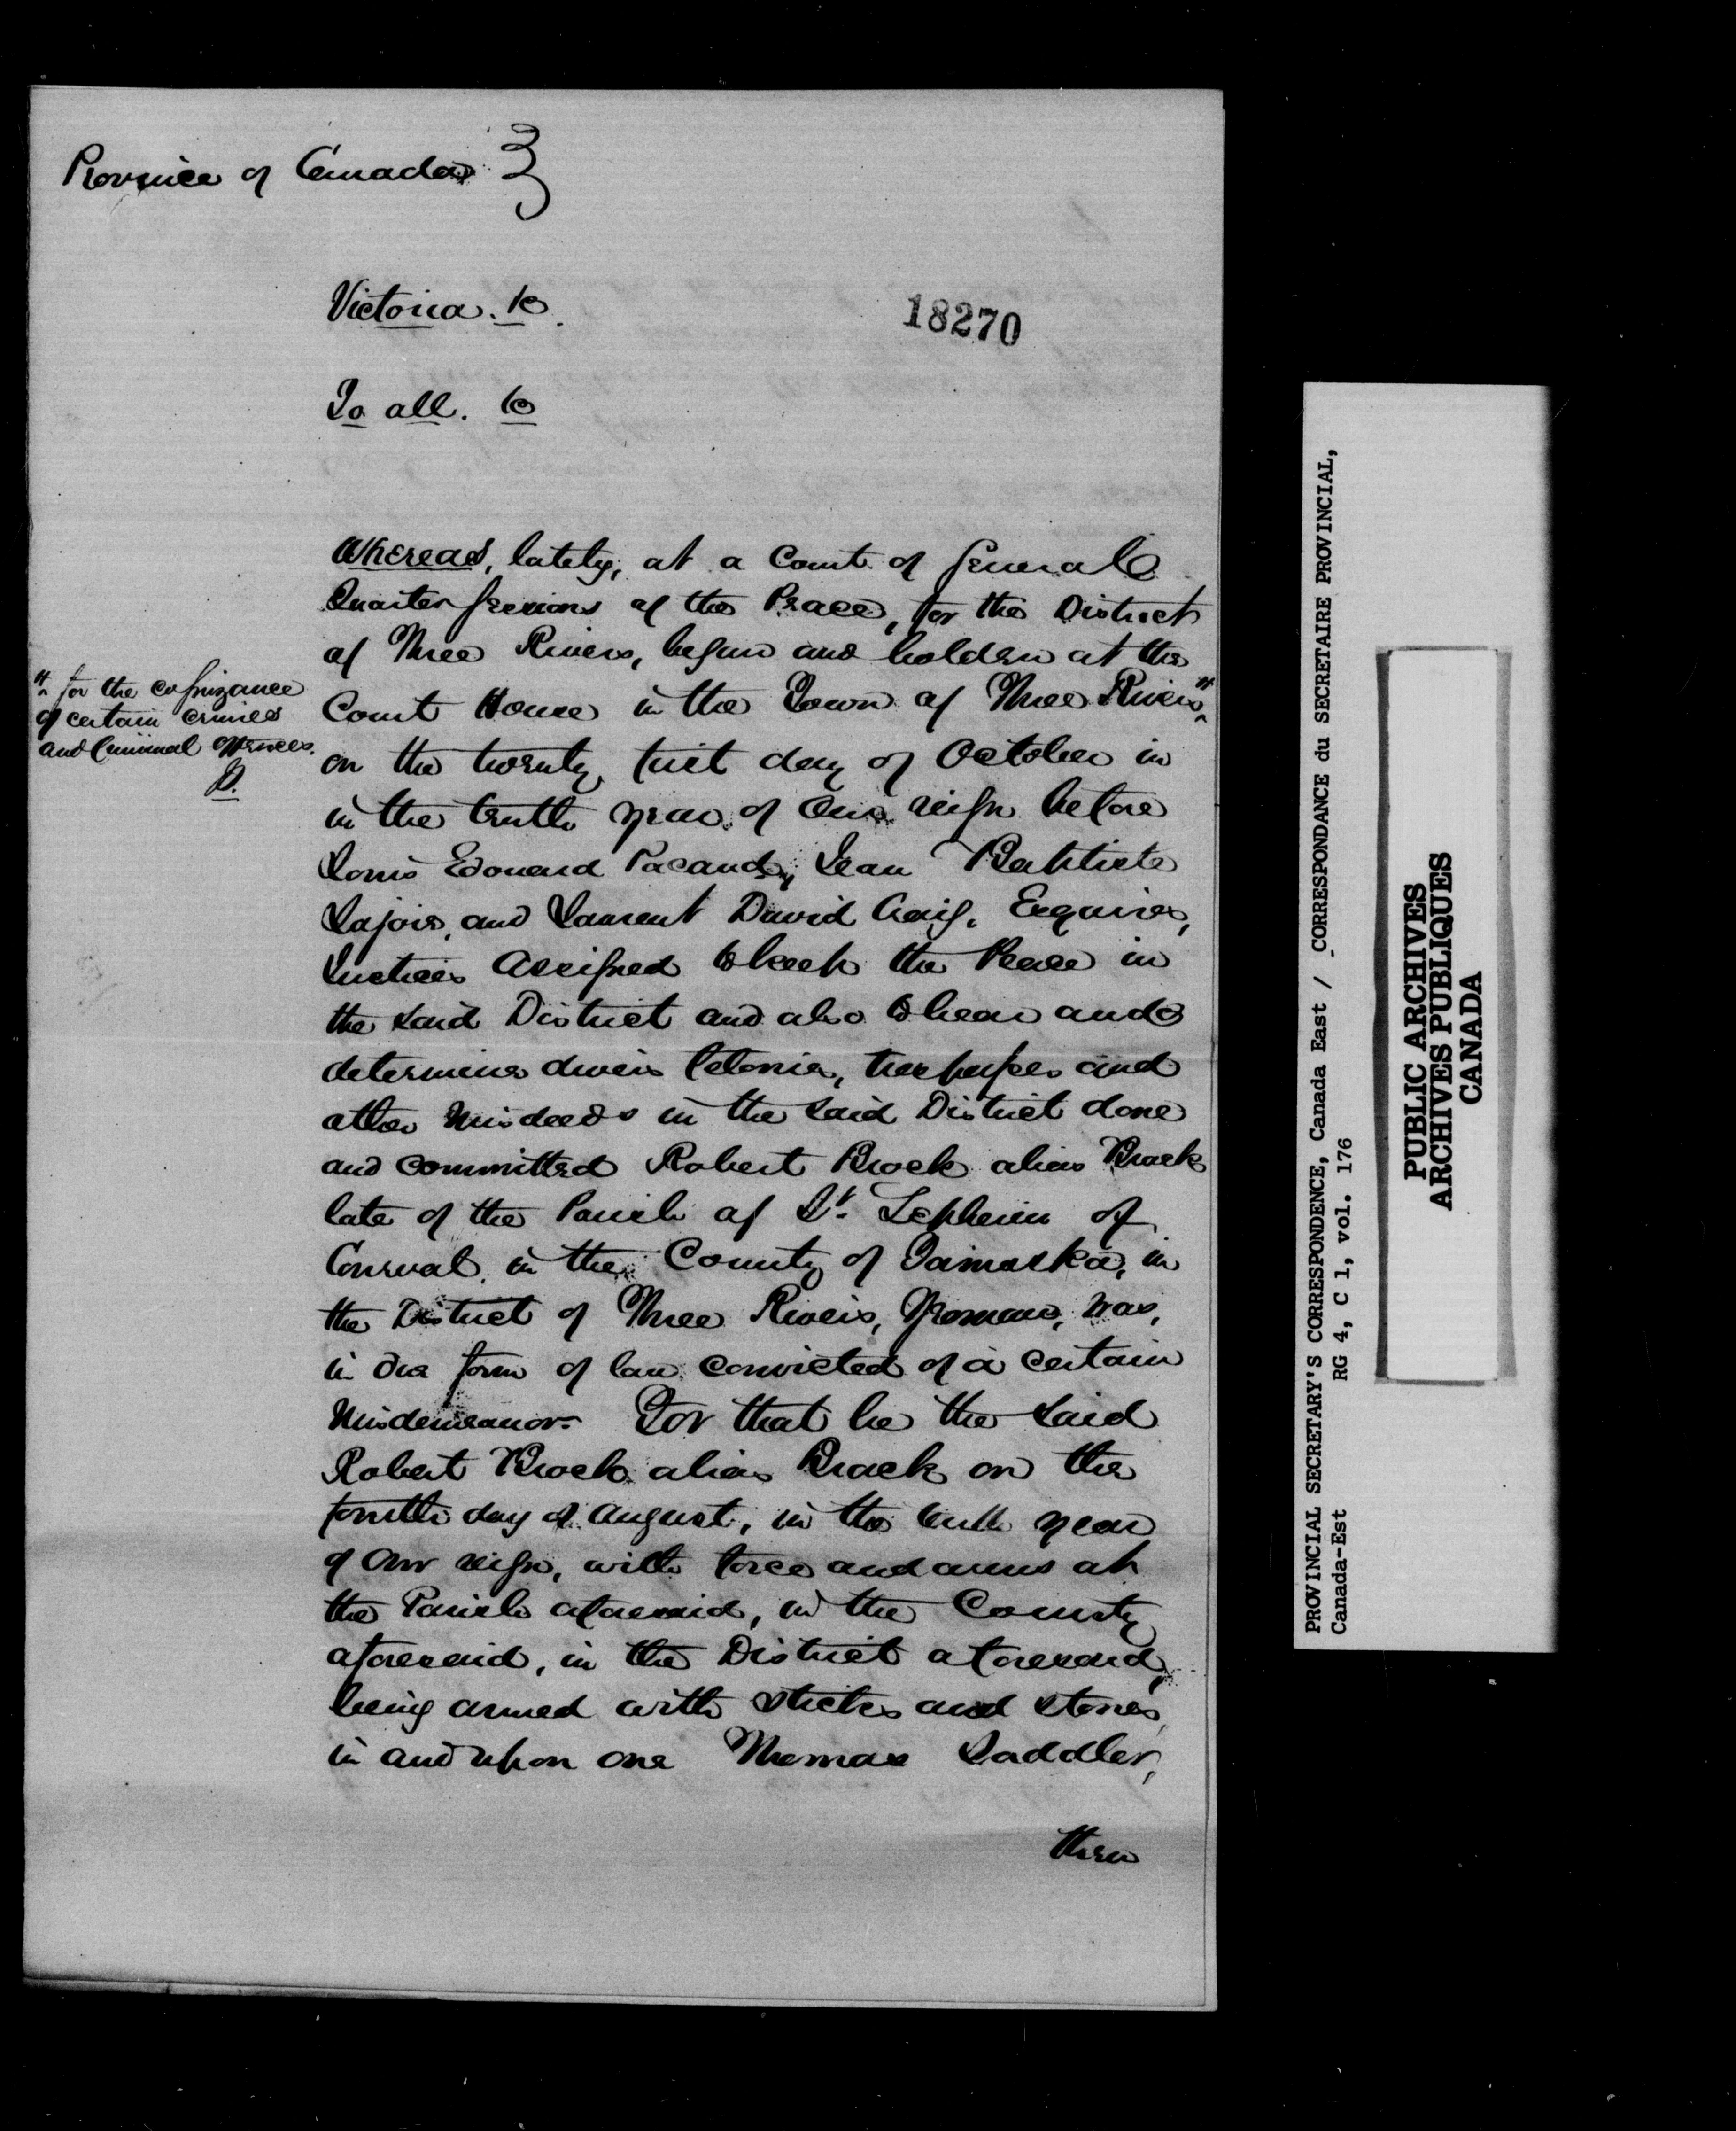 Province of Canada }
Victoria. &c.
18270
To all. &c
Whereas, lately, at a Court of General
Quarter Sessions of the Peace, for the District
of Three Rivers, begun and holden at the
Court House in the Town of Three Rivers "
" for the cognizance
of certain crimes
and Criminal offences.
on the twenty first day of October in
in the tenth year of Our reign before
Louis Edouard Pacaud, Jean Baptiste
Lajoie, and Laurent David Craig, Esquires,
Justices assigned to keep the Peace in
the said District and also to hear and
determine divers felonies, trespasses and
other misdeeds in the said District done
and committed Robert Brock alias Brack
late of the Parish of St. Zepherin of
Courval, in the County of Yamaska, in
the District of Three Rivers, Yeoman, was,
in due form of law convicted of a certain
Misdemeanor. For that he the said
Robert Brock alias Brack on the
fourth day of August, in the tenth year
of Our reign, with force and arms at
the Parish aforesaid, in the County
aforesaid, in the District aforesaid,
being armed with sticks and stones,
in and upon one Thomas Saddler,
then
PROVINCIAL SECRETARY'S CORRESPONDENCE, Canada East / CORRESPONDANCE du SECRETAIRE PROVINCIAL,
Canada-Est RG 4, C 1, vol. 176
PUBLIC ARCHIVES
ARCHIVES PUBLIQUES
CANADA